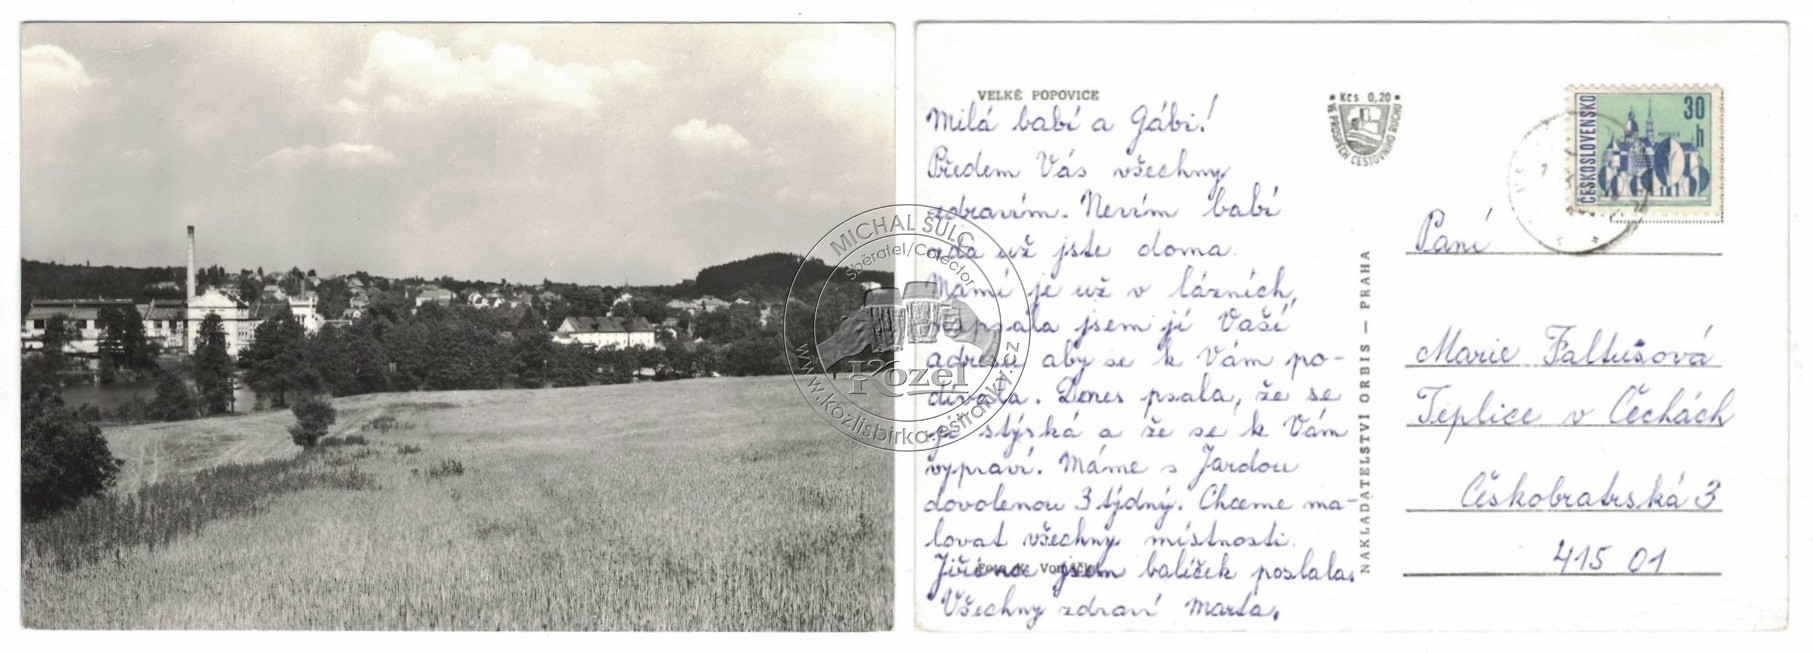 VELKÉ POPOVICE
Milá babí a Gábi!
Předem Vás všechny
zdravím. Nevím babí
zda už jste doma.
Mámi je už v lázních,
napsala jsem jí Vaší
adresu aby se k Vám po-
dívala. Denes psala, že se
jí stýská a že se k Vám
vypraví. Máme s Jardou
dovolenou 3 týdný. Chceme ma-
lovat všechny místnosti.
jsem balíček poslala.
Všechny zdraví Marta.
Foto K.
NAKLADATELSTVÍ ORBIS – PRAHA
* Kčs 0,20 *
VE PROSPĚCH CESTOVNÍHO RUCHU
ČESKOSLOVENSKO
30 h
Paní
Marie Faltusová
Teplice v Čechách
Českobratrská 3
415 01
MICHAL ŠULC
Sběratel/Collector
Kozel
www.kozlisbirka.estranky.cz